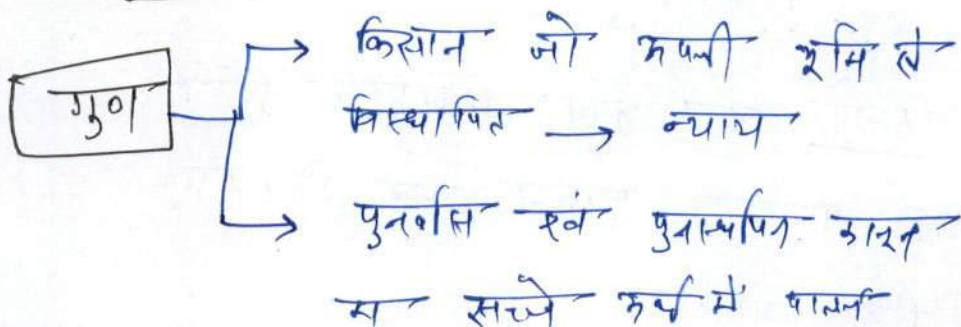 गुण
किसान जो अपनी भूमि से
विस्थापित → न्याय
पुनर्वास एवं पुनर्स्थापन कानून
का सच्चे अर्थ में पालन